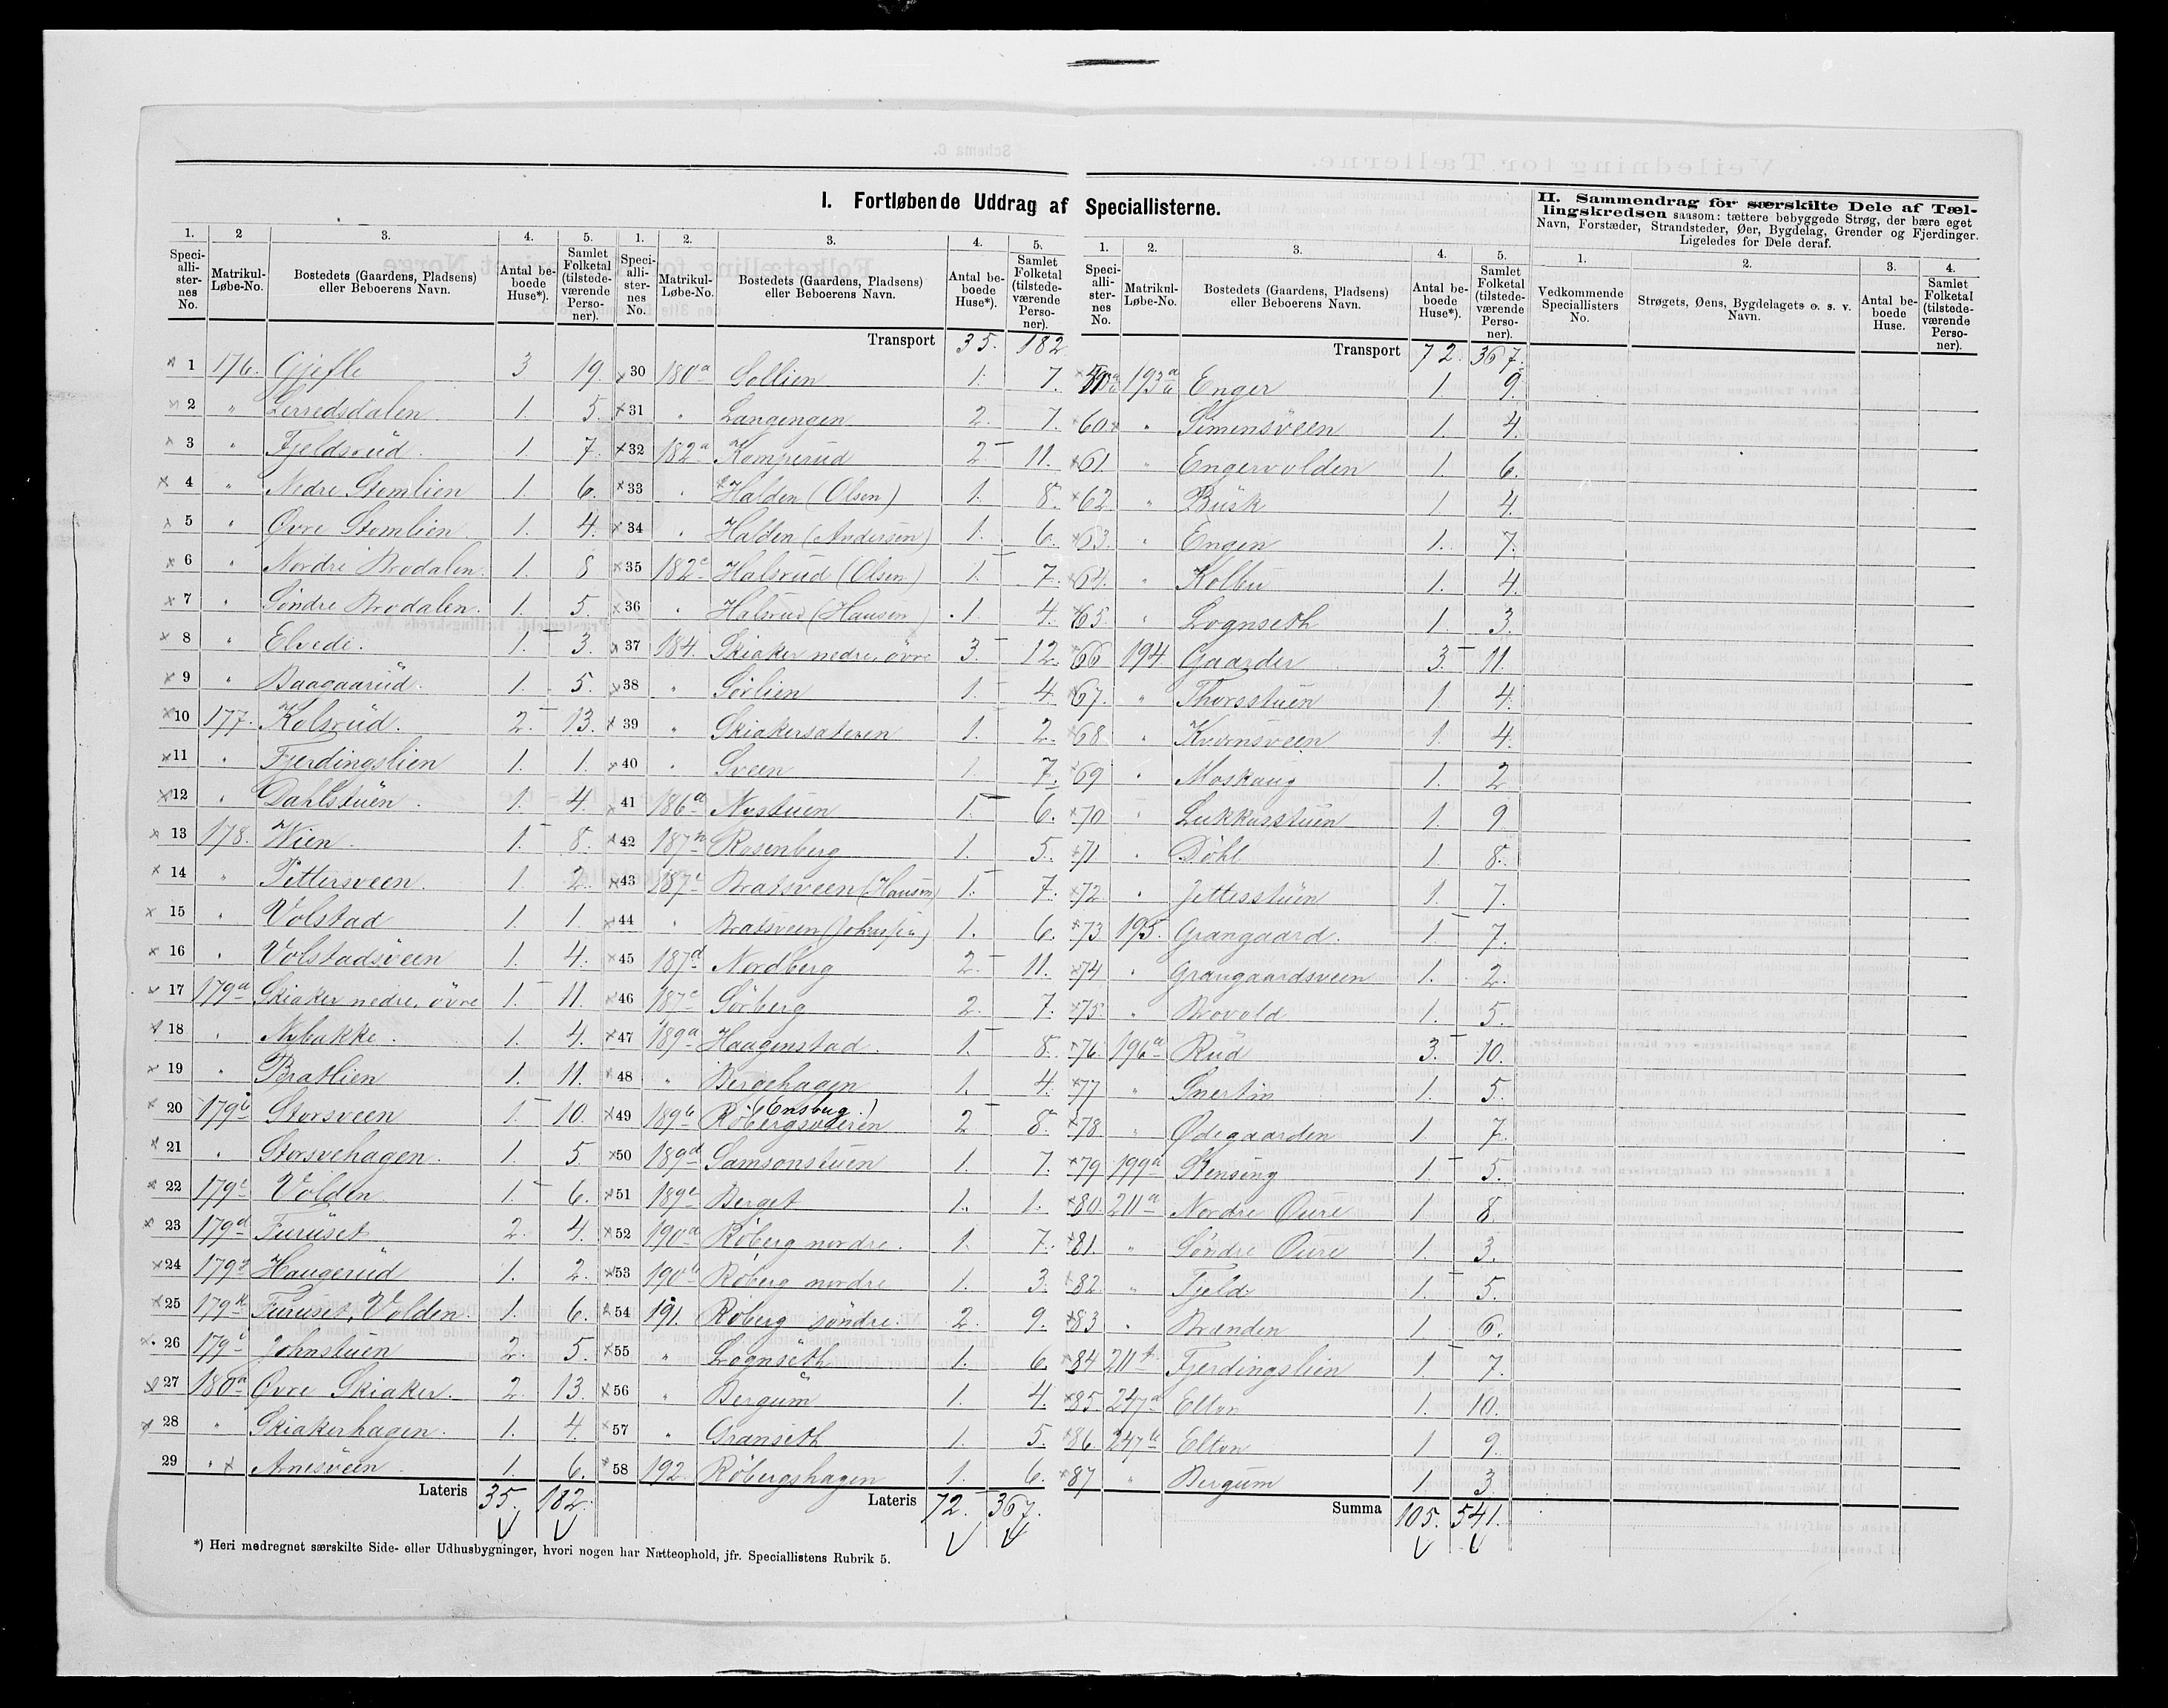 I. Fortløbende Uddrag af Speciallisterne.
1. 2 3. 4. 5.
Speci-alli-ster-nes No. Matrikul-Løbe-No. Bostedets (Gaardens, Pladsens) eller Beboerens Navn. Antal be-boede Huse*). Samlet Folketal (tilstede-værende Perso-ner).
1 176. Gjefle 3 19.
2 " Lerredsdalen 1. 5.
3 " Fjeldsrud. 1 7.
4 " Nedre Stemlien 1. 6.
5 " Øvre Stemlien 1. 4.
6 " Nordre Brodalen. 1. 8
7 " Söndre Brodalen. 1. 5.
8 " Elvedi. 1. 3.
9 " Baagaarud. 1. 5.
10 177. Kolsrud. 2. 13.
11 " Fjerdingslien 1. 1.
12 " Dahlstuen. 1. 4.
13 178. Wien. 1. 8.
14 " Pettersveen. 1. 2.
15 " Volstad 1. 1.
16 " Volstadsveen 1. 4.
17 179a Skiaker nedre, övre 1. 11.
18 " Nybakke. 1. 4.
19 " Bratlien 1. 11.
20 179b Storsveen 1. 10.
21 " Storsvehagen. 1. 5.
22 179c Volden 1. 6.
23 179d Furuset 2. 4.
24 Haugerud 1. 2.
25 Furuset, Volden. 1. 6.
26 179i Johnstuen 2. 5.
27 180a Øvre Skiaker. 2. 13.
28 " Skiakerhagen. 1. 4.
29 " Arnesveen 1. 6.
Lateris 35. 182.
*) Heri medregnet særskilte Side- eller Udhusbygninger, hvori nogen har Natteophold, jfr. Speciallistens Rubrik 5.
1. 2. 3. 4. 5.
Speci-alli-ster-nes No. Matrikul-Løbe-No. Bostedets (Gaardens, Pladsens) eller Beboerens Navn. Antal be-boede Huse*). Samlet Folketal (tilstede-værende Perso-ner).
Transport 35. 182
30 180a Sollien 1. 7.
31 " Langengen 2. 7.
32 182a Kamperud 2 11.
33 " Halden (Olsen) 1. 8.
34 " Halden (Andersen) 1. 6.
35 182c Halsrud (Olsen) 1. 7.
36 " Halsrud (Hansen) 1 4.
37 184. Skiaker nedre, övre 3. 12.
38 " Sörlien 1. 4.
39 " Skiakersæteren 1. 2.
40 " Sveen 1 7.
41 186a Nystuen 1. 6.
42 187n Rosenberg 1. 5.
43 187c Bratsveen (Hansen) 1. 7.
44 " Bratsveen (Johnsen) 1. 6.
45 187d Nordberg 2. 11.
46 187e Sörberg 2. 7.
47 189a Haagenstad. 1. 8.
48 " Bergehagen 1. 4.
49 189b Röbergsveeren (Ensbug.) 2 8.
50 189d Samsonstuen 1. 7.
51 189e Berget 1. 1.
52 190a Röberg nordre. 1. 7.
53 190b Röberg nordre 1. 3.
54 191. Röberg söndre. 2. 9.
55 " Lognseth 1. 6.
56 " Bergum 1. 4.
57 " Granseth 1. 5.
58 192. Röbergshagen 1. 6.
Lateris 72. 367.
1. 2. 3. 4. 5.
Speci-alli-ster-nes No. Matrikul-Løbe-No. Bostedets (Gaardens, Pladsens) eller Beboerens Navn. Antal be-boede Huse*). Samlet Folketal (tilstede-værende Perso-ner).
Transport 72. 367.
193a Enger 1. 9.
60 " Simensveen 1. 4.
61 " Engervolden 1. 6.
62 " Busk 1 4.
63. " Engen 1. 7.
64. " Kolbu 1. 4.
65. " Lognseth 1 3.
66 194. Gaarder 3. 11.
67. " Thorsstuen 1 4.
68 " Kvernsveen 1. 4.
69 " Moskaug 1. 2
70 " Lukkasstuen 1. 9
71 " Döhl 1. 8.
72 " Jettesstuen 1. 7.
73 195. Grangaard. 1. 7.
74 " Grangaardsveen 1. 2.
75. " Brovold 1. 5.
76. 196a Rud 3. 10.
77 " Snertin 1. 5.
78. " Ødegaarden 1. 7.
79 199a Stensing 1 5.
80. 211a Nordre Oure 1 8.
81. " Söndre Oure 1. 3.
82. " Fjeld 1. 5.
83 " Branden 1 6.
84 211 Fjerdingslien 1 7.
85. 247a Elton 1. 10.
86 247b Elton 1 9.
87 " Bergum 1 3.
Summa 105. 541.
II. Sammendrag for særskilte Dele af Tæl-
lingskredsen saasom: tættere bebyggede Strøg, der bære eget
Navn, Forstæder, Strandsteder, Øer, Bygdelag, Grender og Fjerdinger.
Ligeledes for Dele deraf.
1. 2. 3. 4.
Vedkommende Speciallisters No. Strøgets, Øens, Bygdelagets o. s. v. Navn. Antal be-boede Huse. Samlet Folketal (tilstede-værende Perso-ner).